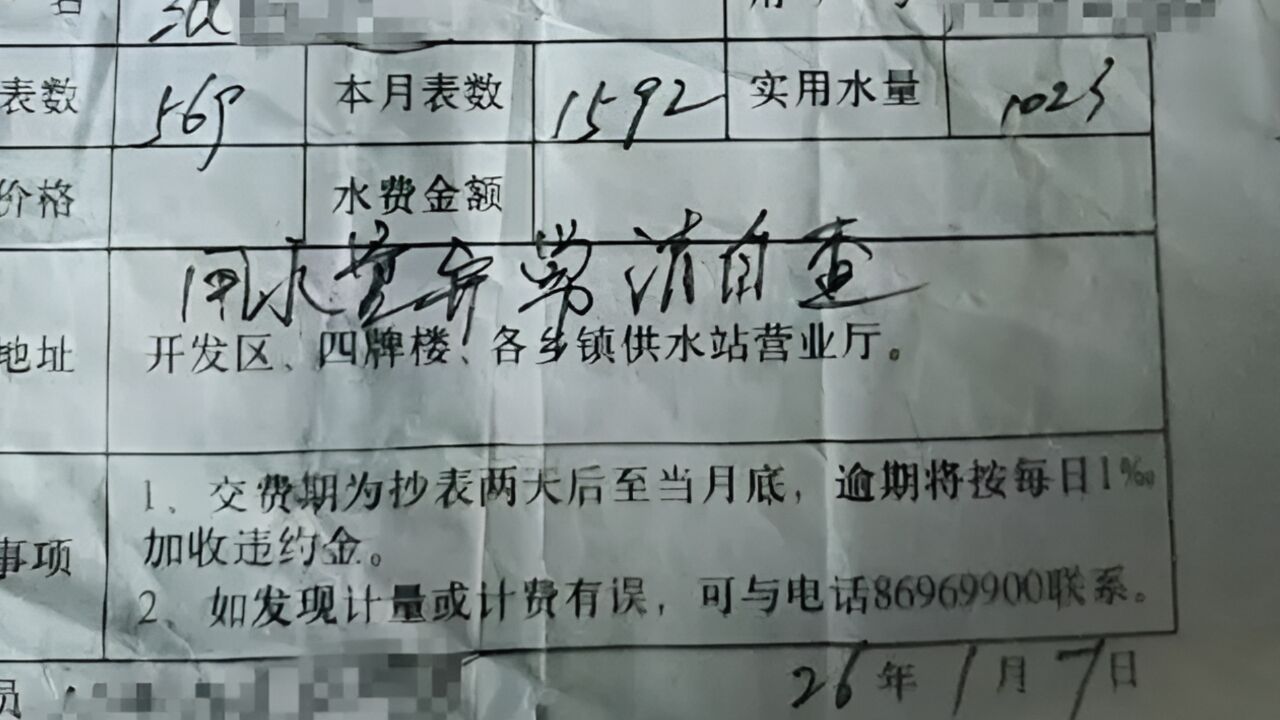 表数 569 本月表数 1592 实用水量 1023
价格 水费金额
用水量异常请自查
地址 开发区、四牌楼、各乡镇供水站营业厅。
1、交费期为抄表两天后至当月底，逾期将按每日1‰
加收违约金。
事项
2、如发现计量或计费有误，可与电话86969900联系。
员 26年1月7日